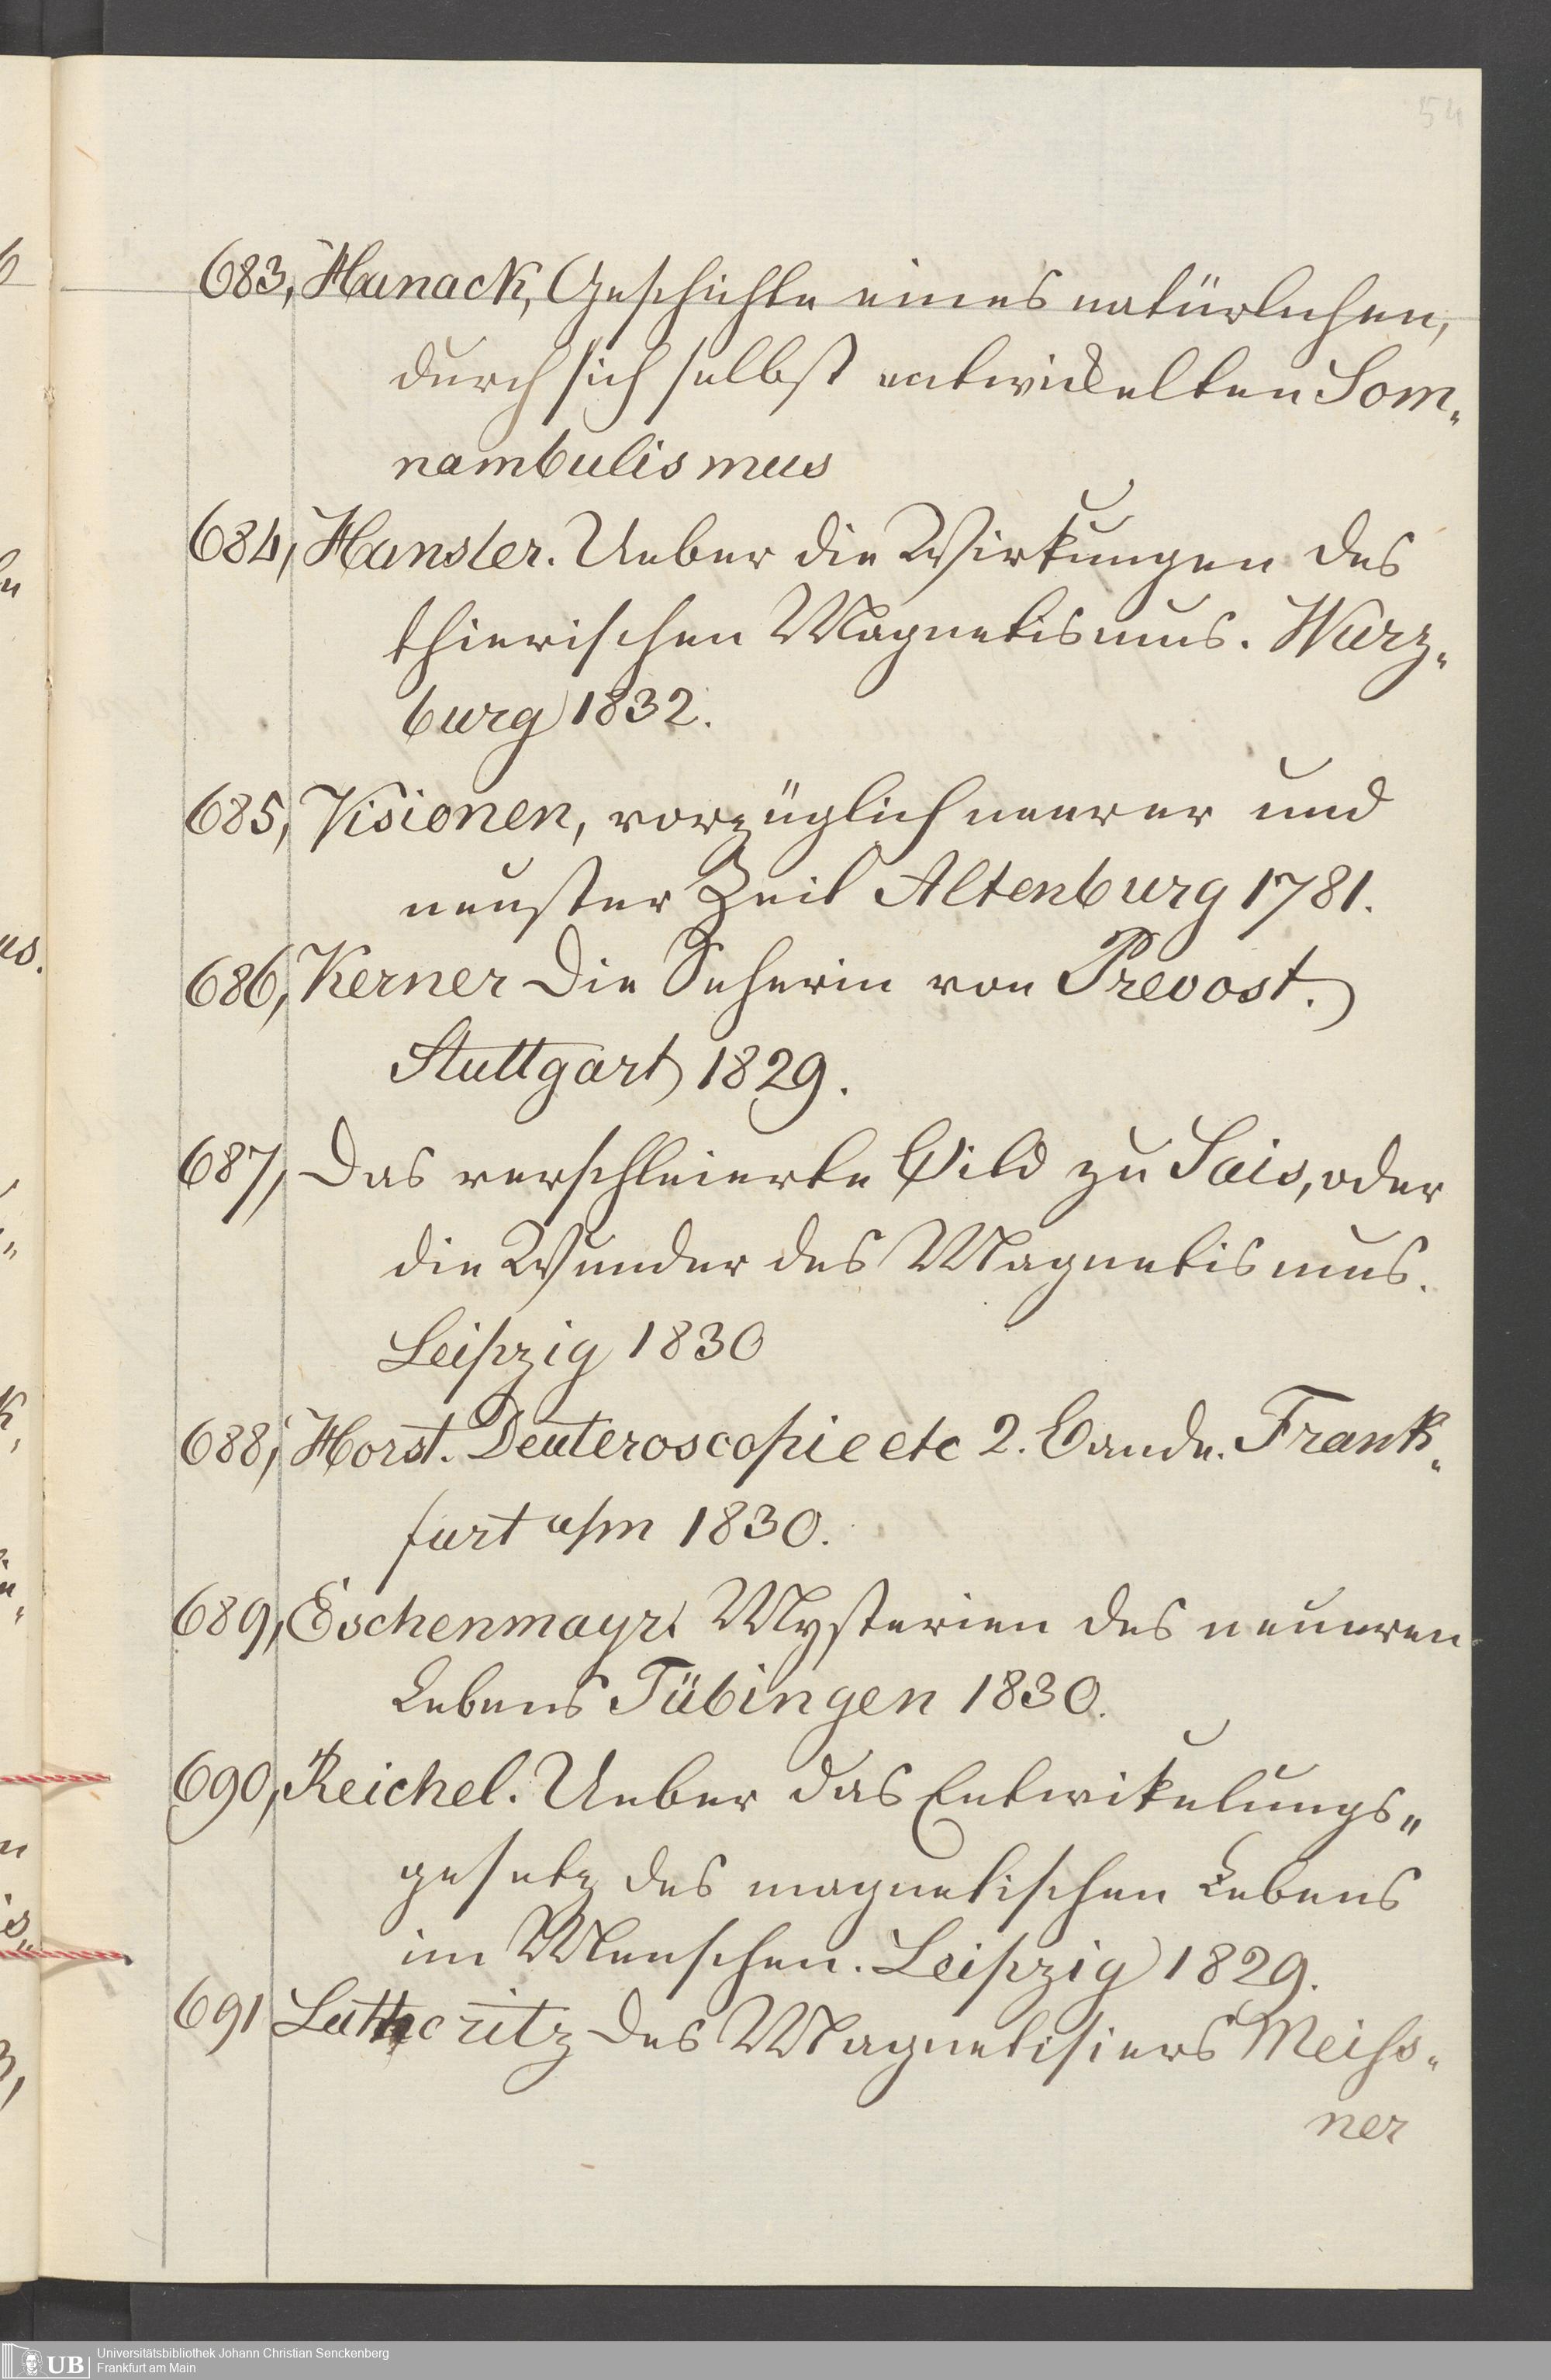 54
683, Hanack, Geschichte eines natürlichen,
durch sich selbst entwickelten Som-
nambulismus
684, Hansler. Ueber die Wirkungen des
thierischen Magnetismus. Würz-
burg 1832.
685, Visionen, vorzüglich neurer und
neuster Zeit Altenburg 1781.
686, Kerner Die Seherin von Prevost.
Stuttgart 1829.
687, Das verschleierte Bild zu Sais, oder
die Wunder des Magnetismus.
Leipzig 1830
688, Horst. Deuteroscopie etc 2. Bande. Frank-
furt a/m 1830.
689, Eschenmayr. Mysterien des neueren
Lebens Tübingen 1830.
690, Reichel. Ueber das Entwikelungs-
gesetz des magnetischen Lebens
im Menschen. Leipzig 1829.
691 des Magnetisiers Meiss-
ner
UB Universitätsbibliothek Johann Christian Senckenberg
Frankfurt am Main